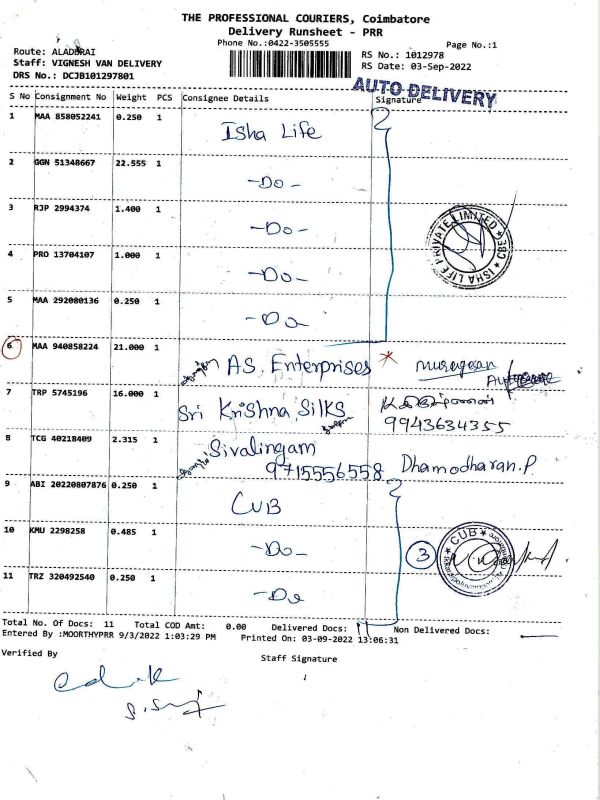 THE PROFESSIONAL COURIERS, Coimbatore
Delivery Runsheet - PRR
Phone No.:0422-3505555
Page No.:1
Route: ALADURAI
Staff: VIGNESH VAN DELIVERY
DRS No.: DCJB101297801
RS No.: 1012978
RS Date: 03-Sep-2022
AUTO DELIVERY
S No Consignment No Weight PCS Consignee Details Signature
1 MAA 858052241 0.250 1 Isha Life
2 GGN 51348667 22.555 1 -Do-
3 RJP 2994374 1.400 1 -Do-
ISHA LIFE PRIVATE LIMITED * CBE *
4 PRO 13704107 1.000 1 -Do-
5 MAA 292080136 0.250 1 -Do
6 MAA 940858224 21.000 1 AS. Enterprises * murugesan
7 TRP 5745196 16.000 1 Sri Krishna Silks
9943634355
8 TCG 40218409 2.315 1 Sivalingam
9715556558 Dhamodharan.P.
9 ABI 20220807876 0.250 1 CUB
10 KMU 2298258 0.485 1 -Do- 3 CUB
11 TRZ 320492540 0.250 1 -Do
Total No. Of Docs: 11 Total COD Amt: 0.00 Delivered Docs: 11 Non Delivered Docs: —
Entered By :MOORTHYPRR 9/3/2022 1:03:29 PM Printed On: 03-09-2022 13:06:31
Verified By Staff Signature